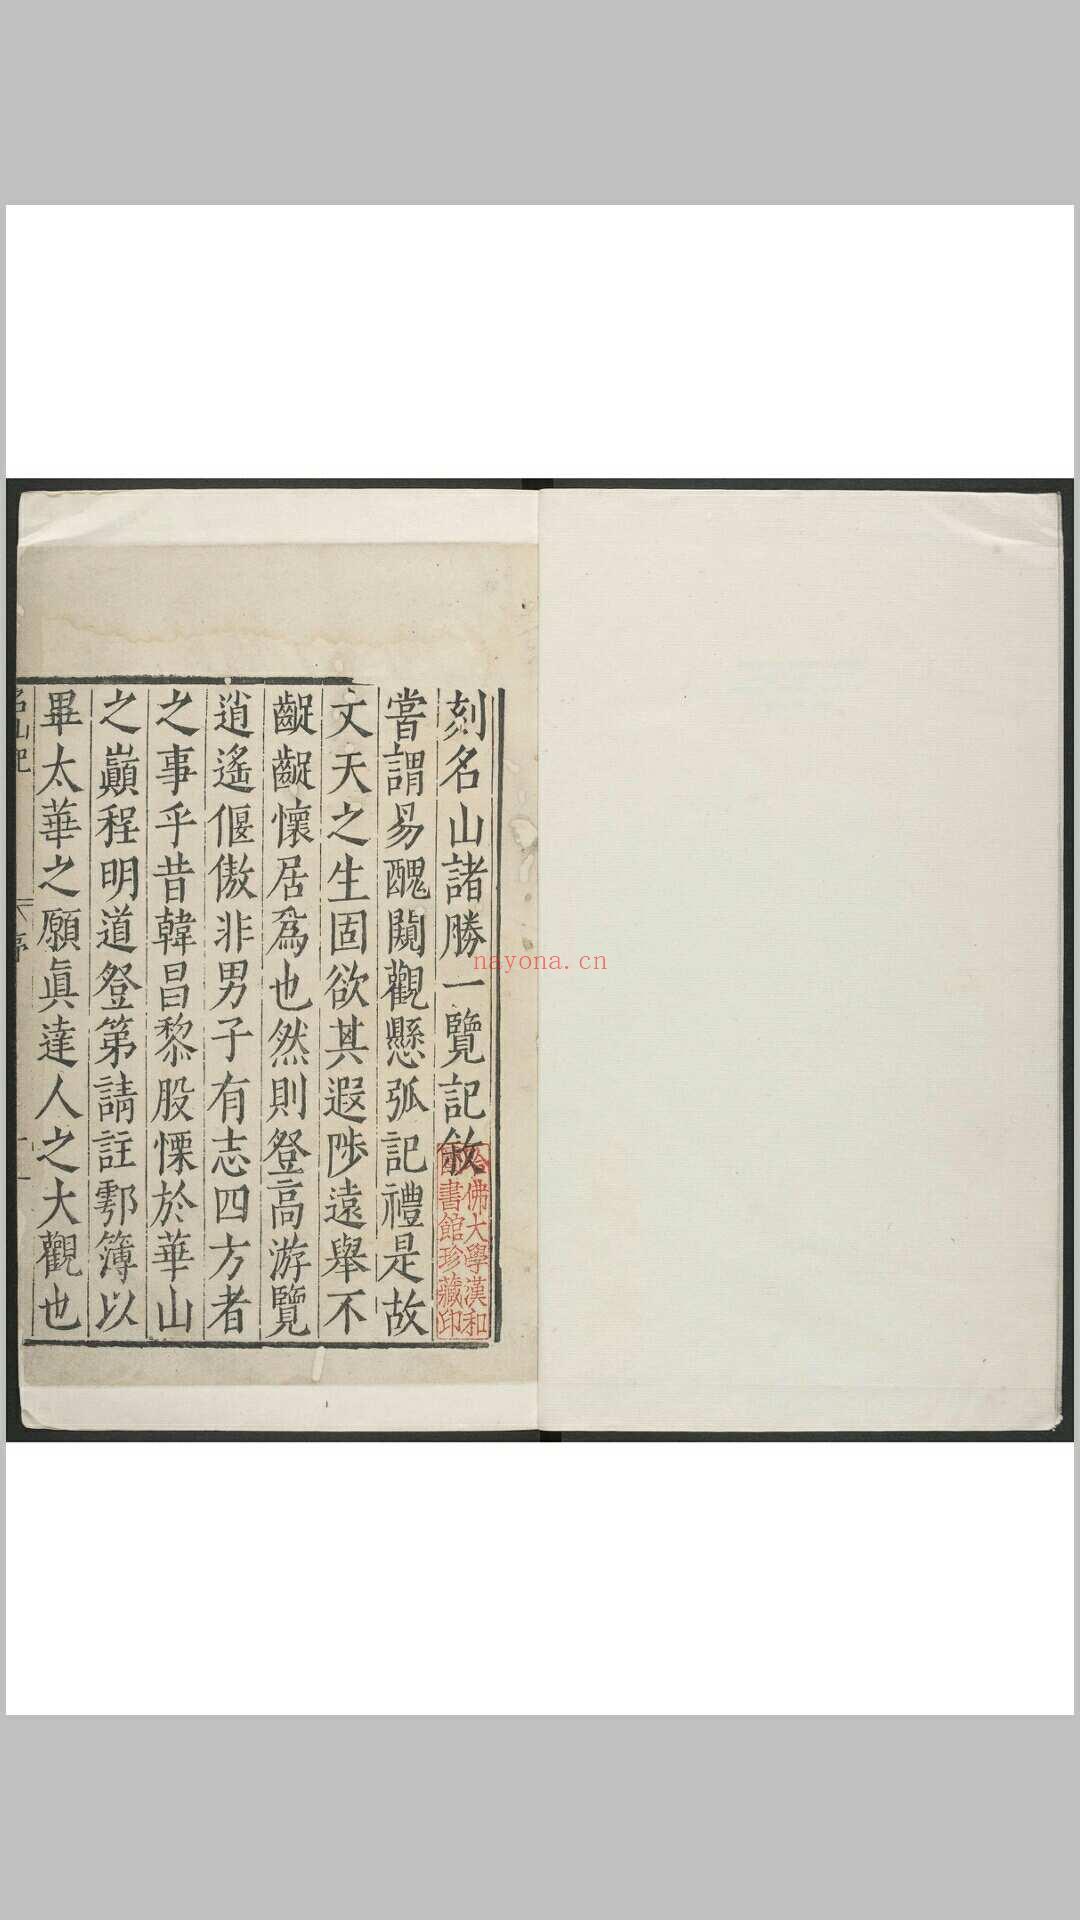 刻名山諸勝一覽記敘
嘗謂易醜闚觀懸弧記禮是故
丈夫之生固欲其遐陟遠舉不
齪齪懷居爲也然則登高游覽
逍遙偃傲非男子有志四方者
之事乎昔韓昌黎股慄於華山
之巔程明道登第請註鄠簿以
畢太華之願眞達人之大觀也
名山記
序
佛大學漢和
書館珍藏印
nayona.cn